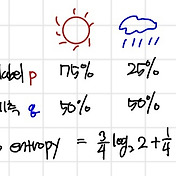 label p 75% 25%
예측 q 50% 50%
entropy = 3/4 log₂ 2 + 1/4